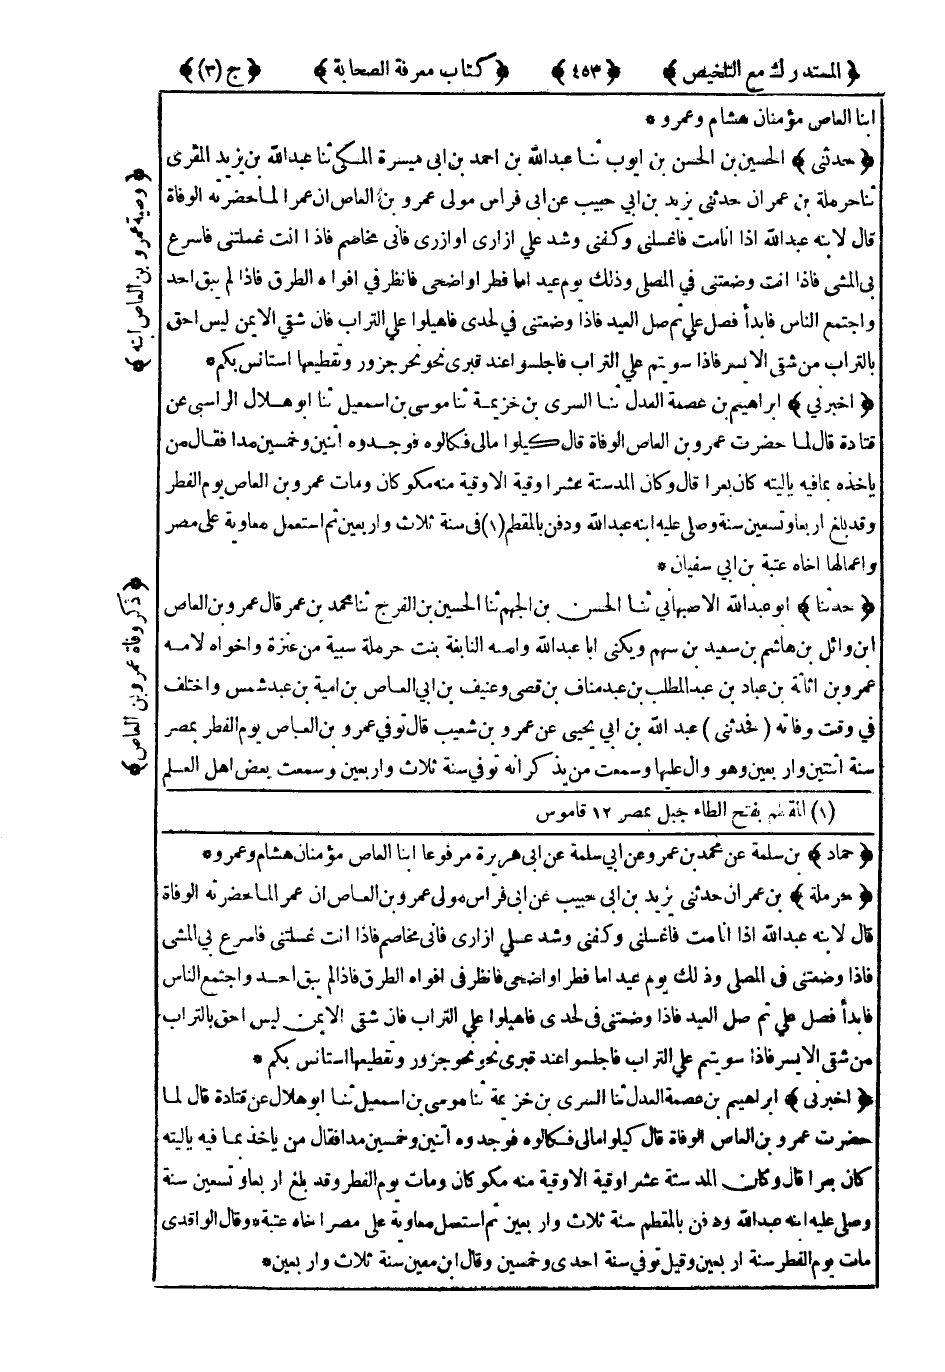 ﴿ المستدرك مع التلخيص ﴾ ﴿ ٤٥٣ ﴾ ﴿ كتاب معرفة الصحابة ﴾ ﴿ ج (٣) ﴾
ابنا العاص مؤمنان هشام وعمرو *
﴿ حدثنى ﴾ الحسين بن الحسن بن ايوب ثنا عبدالله بن احمد بن ابى ميسرة المكى ثنا عبدالله بن يزيد المقرى
ثنا حرملة بن عمران حدثنى يزيد بن ابي حبيب عن ابى فراس مولى عمرو بن العاص ان عمرا لما حضرته الوفاة
قال لابنه عبدالله اذا انامت فاغسلنى وكفنى وشد علي ازارى اوازرى فانى مخاصم فاذا انت غسلتنى فاسرع
بى المشى فاذا انت وضعتنى في المصلى وذلك يوم عيد اما فطر او اضحى فانظر في افواه الطرق فاذا لم يبق احد
واجتمع الناس فابدأ فصل علي ثم صل العيد فاذا وضعتنى في لحدى فاهيلوا علي التراب فان شقي الايمن ليس احق
بالتراب من شقى الايسر فاذا سويتم علي التراب فاجلسوا عند قبرى نحو نحر جزور وتقطيعها استانس بكم *
﴿ اخبرني ﴾ ابراهيم بن عصمة العدل ثنا السرى بن خزيمة ثنا موسى بن اسمعيل ثنا ابو هلال الراسبى عن
قتادة قال لما حضرت عمرو بن العاص الوفاة قال كيلوا مالى فكالوه فوجدوه اثنين وخمسين مدا فقال من
ياخذه بما فيه ياليته كان بعرا قال وكان المد ستة عشر اوقية الاوقية منه مكوكان ومات عمرو بن العاص يوم الفطر
وقد بلغ اربعا وتسعين سنة وصلى عليه ابنه عبدالله ودفن بالمقطم (١) فى سنة ثلاث واربعين ثم استعمل معاوية على مصر
واعمالها اخاه عتبة بن ابي سفيان *
﴿ حدثنا ﴾ ابو عبدالله الاصبهاني ثنا الحسن بن الجهم ثنا الحسين بن الفرج ثنا محمد بن عمر قال عمرو بن العاص
ابن وائل بن هاشم بن سعيد بن سهم ويكنى ابا عبدالله وامه النابغة بنت حرملة سبية من عنزة واخواه لامه
عمرو بن اثاثة بن عباد بن عبدالمطلب بن عبد مناف بن قصى وعنيف بن ابي العاص بن امية بن عبد شمس واختلف
في وقت وفاته ( فحدثنى ) عبد الله بن ابي يحيى عن عمرو بن شعيب قال توفي عمرو بن العاص يوم الفطر بمصر
سنة اثنتين واربعين وهو وال عليها وسمعت من يذكر انه توفي سنة ثلاث واربعين وسمعت بعض اهل العلم
(١) المقطم بفتح الطاء جبل بمصر ١٢ قاموس
﴿ حماد ﴾ بن سلمة عن محمد بن عمرو عن ابي سلمة عن ابى هريرة مرفوعا ابنا العاص مؤمنان هشام وعمرو *
﴿ حرملة ﴾ بن عمران حدثنى يزيد بن ابى حبيب عن ابى فراس مولى عمرو بن العاص ان عمر الما حضرته الوفاة
قال لابنه عبدالله اذا انامت فاغسلنى وكفنى وشد علي ازارى فانى مخاصم فاذا انت غسلتنى فاسرع بي المشى
فاذا وضعتنى فى المصلى وذلك يوم عيد اما فطر او اضحى فانظر فى افواه الطرق فاذا لم يبق احد واجتمع الناس
فابدأ فصل علي ثم صل العيد فاذا وضعتنى فى لحدى فاهيلوا علي التراب فان شقى الايمن ليس احق بالتراب
من شقى الايسر فاذا سويتم علي التراب فاجلسوا عند قبرى نحو نحر جزور وتقطيعها استانس بكم *
﴿ اخبرنى ﴾ ابراهيم بن عصمة العدل ثنا السرى بن خزيمة ثنا موسى بن اسمعيل ثنا ابو هلال عن قتادة قال لما
حضرت عمرو بن العاص الوفاة قال كيلوا مالى فكالوه فوجدوه اثنين وخمسين مدا فقال من ياخذ بما فيه ياليته
كان بعرا قال وكان المد ستة عشر اوقية الاوقية منه مكوكان ومات يوم الفطر وقد بلغ اربعا وتسعين سنة
وصلى عليه ابنه عبدالله ودفن بالمقطم سنة ثلاث واربعين ثم استعمل معاوية على مصر اخاه عتبة * وقال الواقدى
مات يوم الفطر سنة اربعين وقيل توفي سنة احدى وخمسين وقال ابن معين سنة ثلاث واربعين *
﴿ وصية عمرو بن العاص ابنه ﴾
﴿ ذكر وفاة عمرو بن العاص ﴾